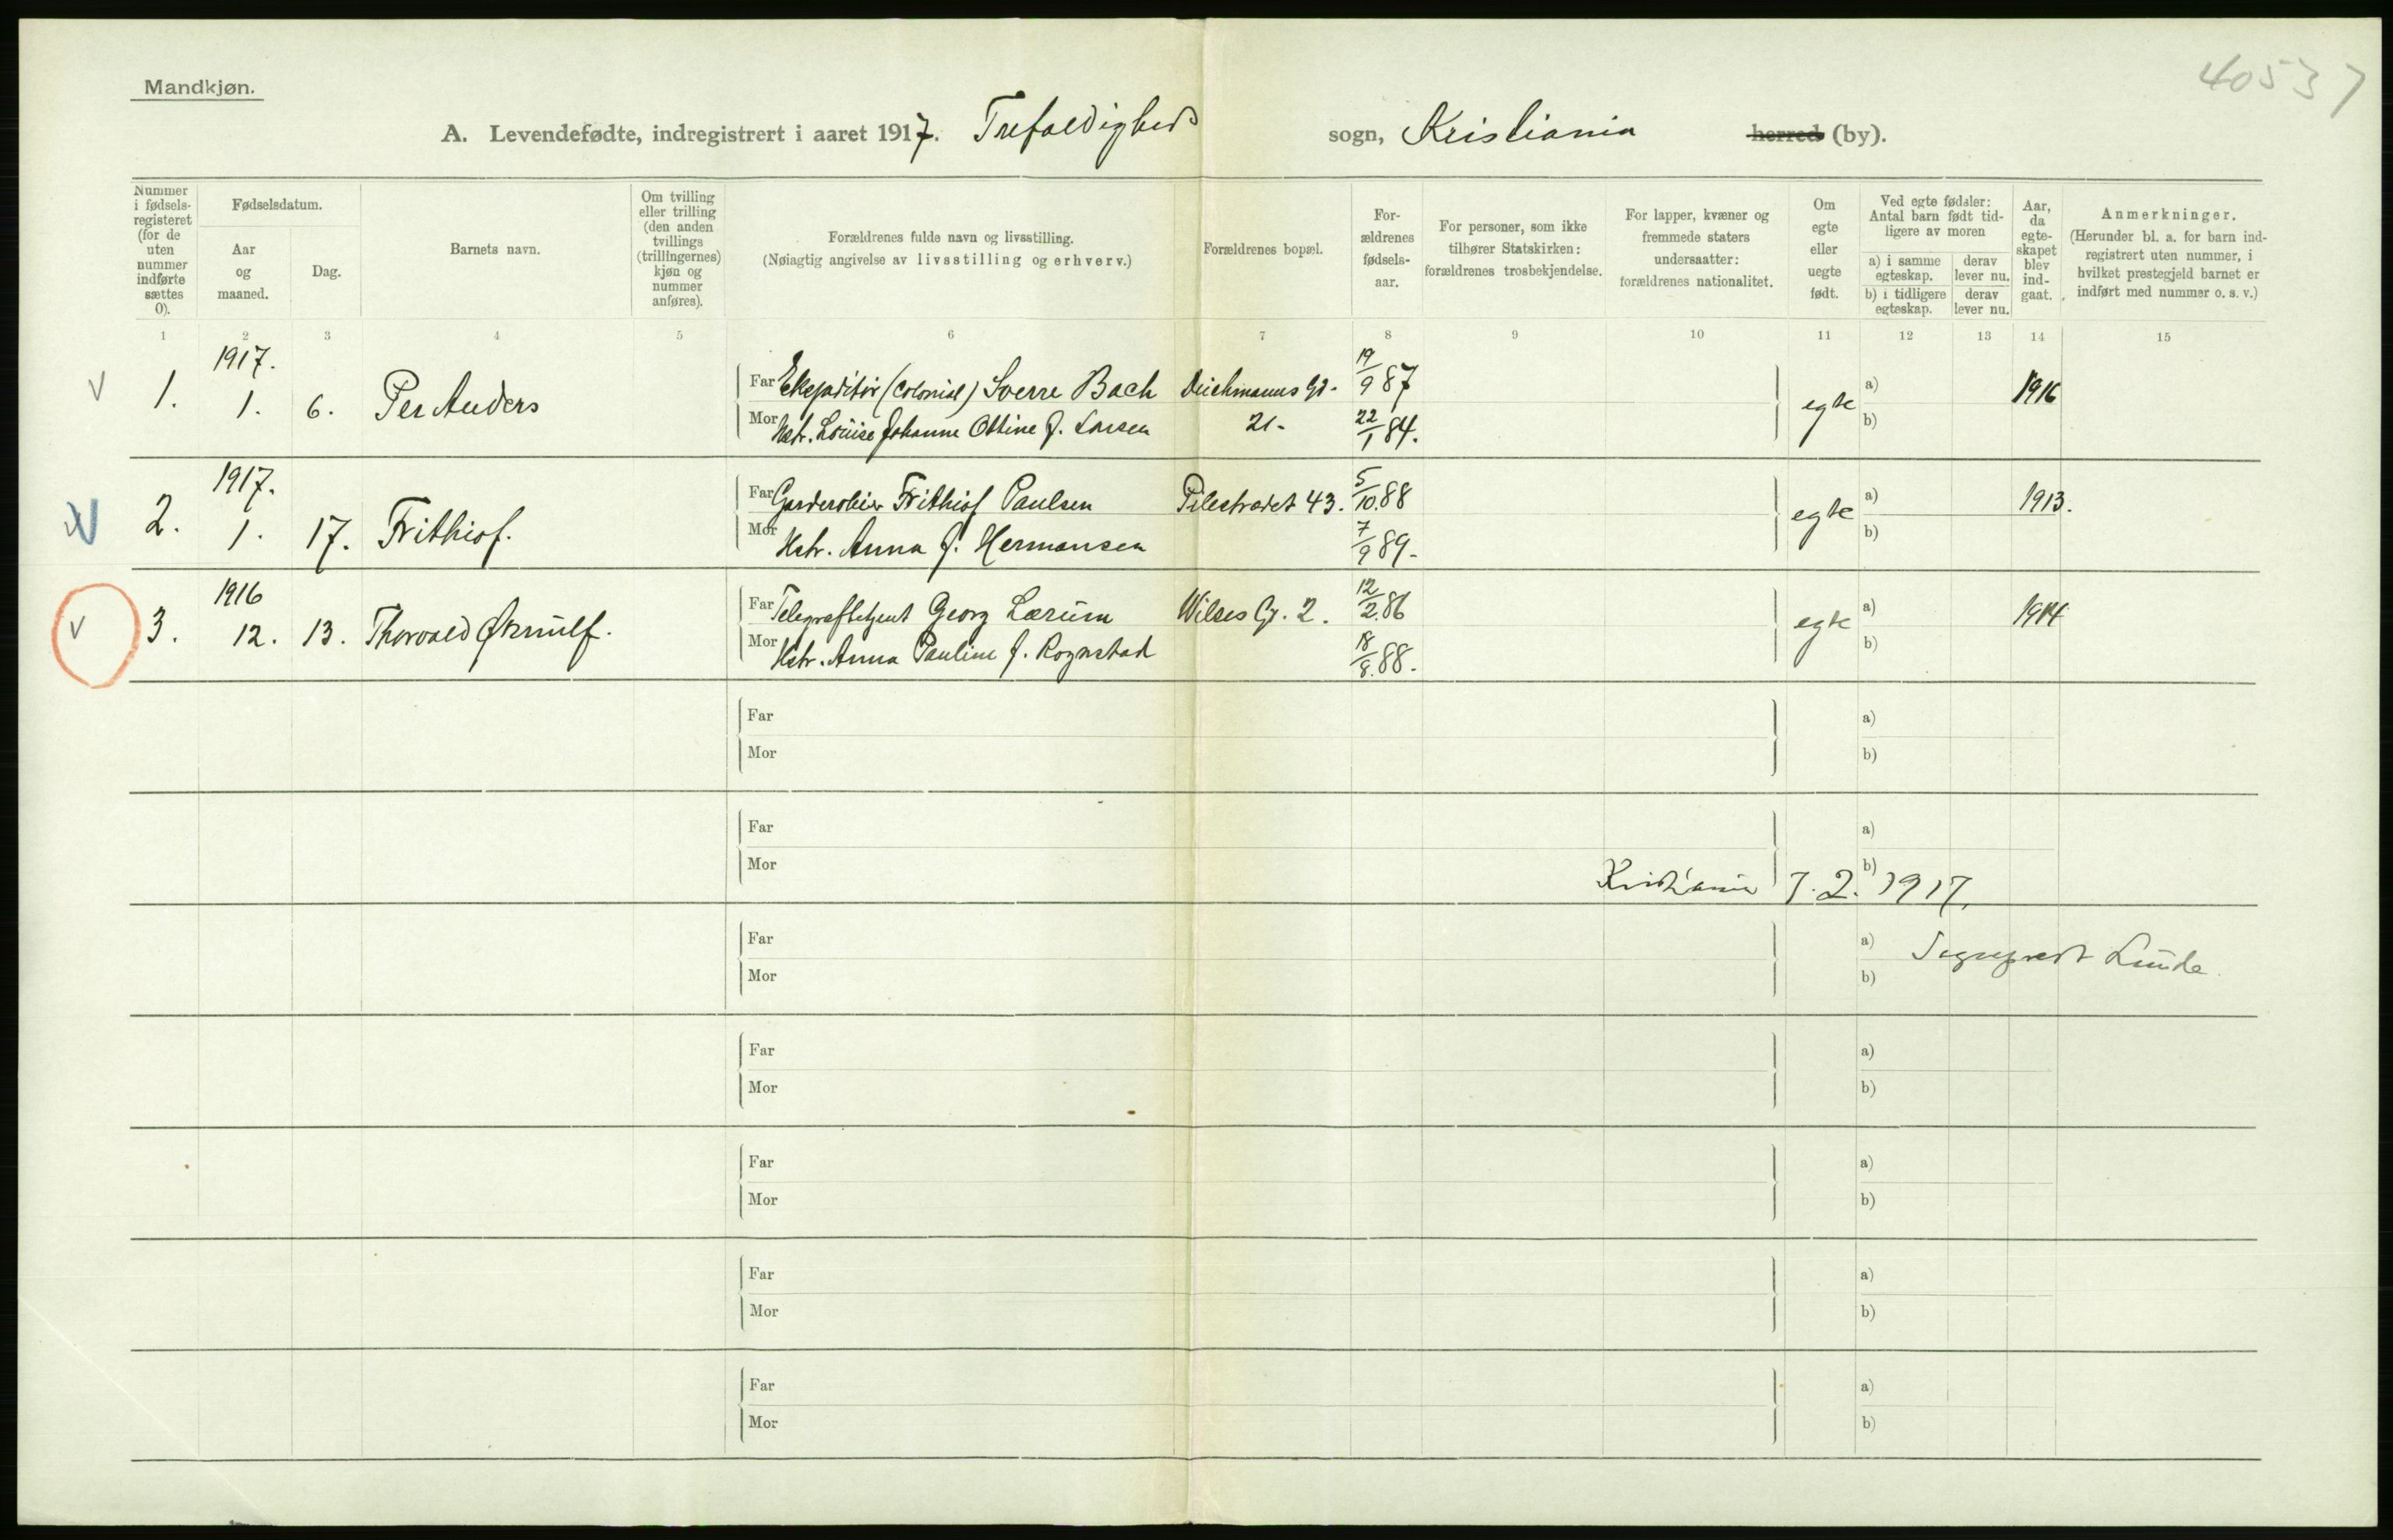 40537
Mandkjøn.
A. Levendefødte, indregistrert i aaret 1917. Trefoldigheds sogn, Kristiania herred (by).
Nummer i fødsels-registeret (for de uten nummer indførte sættes 0).
Fødselsdatum.
Aar og maaned.
Dag.
Barnets navn.
Om tvilling eller trilling (den anden tvillings (trillingernes) kjøn og nummer anføres).
Forældrenes fulde navn og livsstilling.
(Nøiagtig angivelse av livsstilling og erhverv.)
Forældrenes bopæl.
For-ældrenes fødsels-aar.
For personer, som ikke tilhører Statskirken: forældrenes trosbekjendelse.
For lapper, kvæner og fremmede staters undersaatter: forældrenes nationalitet.
Om egte eller uegte født.
Ved egte fødsler: Antal barn født tid-ligere av moren
a) i samme egteskap.
derav lever nu.
b) i tidligere egteskap.
derav lever nu.
Aar, da egte-skapet blev ind-gaat.
Anmerkninger.
(Herunder bl. a. for barn ind-registrert uten nummer, i hvilket prestegjeld barnet er indført med nummer o. s. v.)
1 2 3 4 5 6 7 8 9 10 11 12 13 14 15
V 1. 1917. 1. 6. Per Anders
Far Ekspeditör (Colonial) Sverre Bach Deichmanns Gd. 19/9 87
Mor Hstr. Louise Johanne Ottine f. Larsen 21. 22/1 84.
egte a) b) 1916
V 2. 1917. 1. 17. Frithiof.
Far Garderobier Frithiof Paulsen Pilestrædet 43. 5/10.88
Mor Hstr. Anna f. Hermansen 7/9 89.
egte a) b) 1913.
V 3. 1916 12. 13. Thorvald Ørnulf.
Far Telegrafbetjent Georg Lærum Wilses G. 2. 12/2.86
Mor Hstr. Anna Pauline f. Rognstad 18/8.88.
egte a) b) 1914
Far a)
Mor b)
Far a)
Mor b)
Kristiania 7. 2. 1917.
Far a)
Sogneprest Lunde.
Mor b)
Far a)
Mor b)
Far a)
Mor b)
Far a)
Mor b)
Far a)
Mor b)